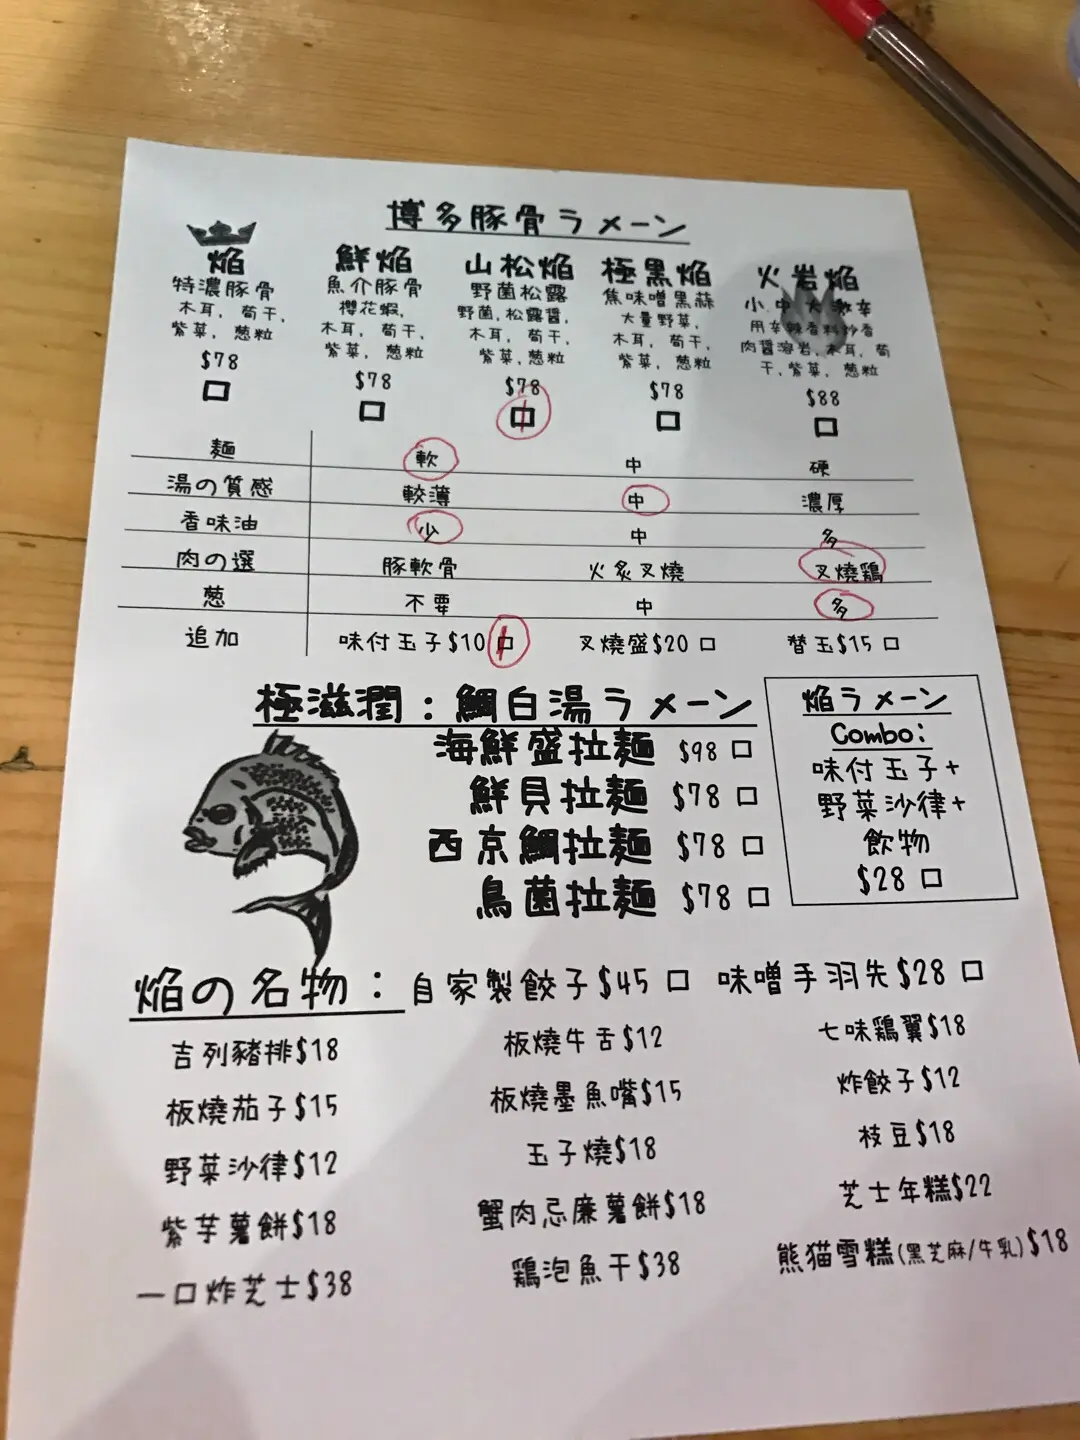 博多豚骨ラーメン
焔 鮮焔 山松焔 極黒焔 火岩焔
特濃豚骨 魚介豚骨 野菌松露 焦味噌黒蒜 小 中 大 激辛
木耳, 荀干, 櫻花蝦, 野菌, 松露醬, 大量野菜, 用辛辣香料炒香
紫菜, 葱粒 木耳, 荀干, 木耳, 荀干, 木耳, 荀干, 肉醬溶岩, 木耳, 荀
$78 紫菜, 葱粒 紫菜, 葱粒 紫菜, 葱粒 干, 紫菜, 葱粒
$78 $78 $78 $88
麵 軟 中 硬
湯の質感 較薄 中 濃厚
香味油 少 中 多
肉の選 豚軟骨 火炙叉燒 叉燒鶏
葱 不要 中 多
追加 味付玉子$10 叉燒盛$20 替玉$15
極滋潤：鯛白湯ラメーン
海鮮盛拉麵 $98
鮮貝拉麵 $78
西京鯛拉麵 $78
鳥菌拉麵 $78
焔ラメーン
Combo:
味付玉子+
野菜沙律+
飲物
$28
焔の名物：自家製餃子$45 味噌手羽先$28
吉列豬排$18 板燒牛舌$12 七味鶏翼$18
板燒茄子$15 板燒墨魚嘴$15 炸餃子$12
野菜沙律$12 玉子燒$18 枝豆$18
紫芋薯餅$18 蟹肉忌廉薯餅$18 芝士年糕$22
一口炸芝士$38 鶏泡魚干$38 熊猫雪糕(黑芝麻/牛乳)$18